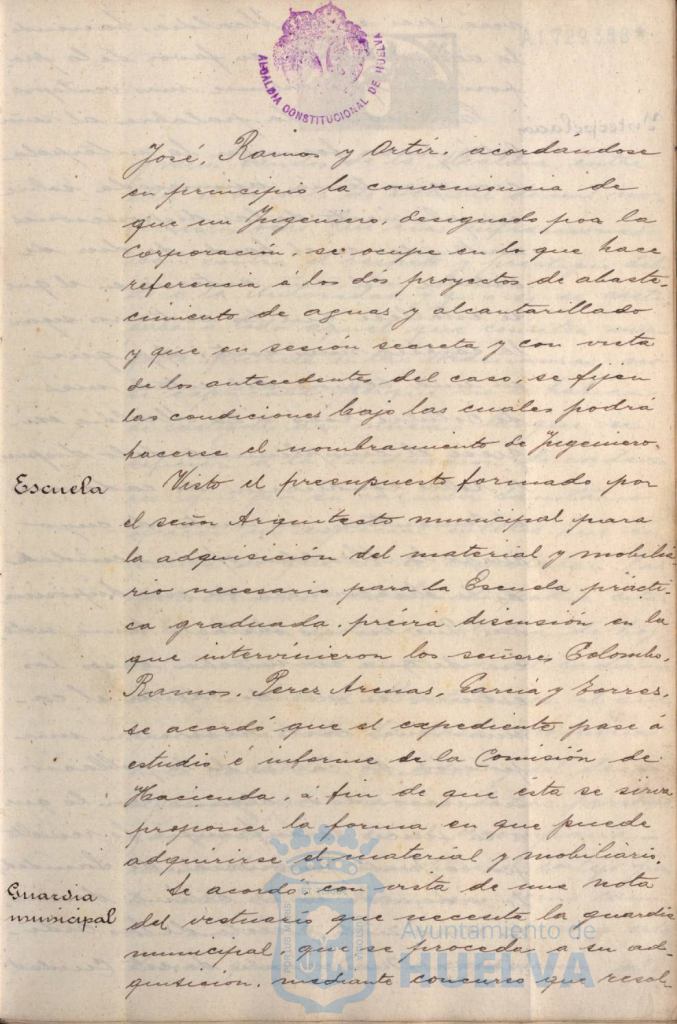 ALCALDIA CONSTITUCIONAL DE HUELVA
José, Ramos y Ortiz, acordándose
en principio la conveniencia de
que un Ingeniero, designado por la
Corporación, se ocupe en lo que hace
referencia á los dos proyectos de abaste-
cimiento de aguas y alcantarillado
y que en sesión secreta y con vista
de los antecedentes del caso, se fijen
las condiciones bajo las cuales podrá
hacerse el nombramiento de Ingeniero.
Escuela
Visto el presupuesto formado por
el señor Arquitecto municipal para
la adquisición del material y mobilia-
rio necesario para la Escuela prácti-
ca graduada, prévia discusión en la
que intervinieron los señores Colombo,
Ramos, Perez Arenas, García y Torres,
se acordó que el expediente pase á
estudio é informe de la Comisión de
Hacienda, á fin de que ésta se sirva
proponer la forma en que puede
adquirirse el material y mobiliario.
Guardia
municipal
Se acordó con vista de una nota
del vestuario que necesita la guardia
municipal, que se proceda a su ad-
quisición, mediante concurso que resol-
Ayuntamiento de
HUELVA